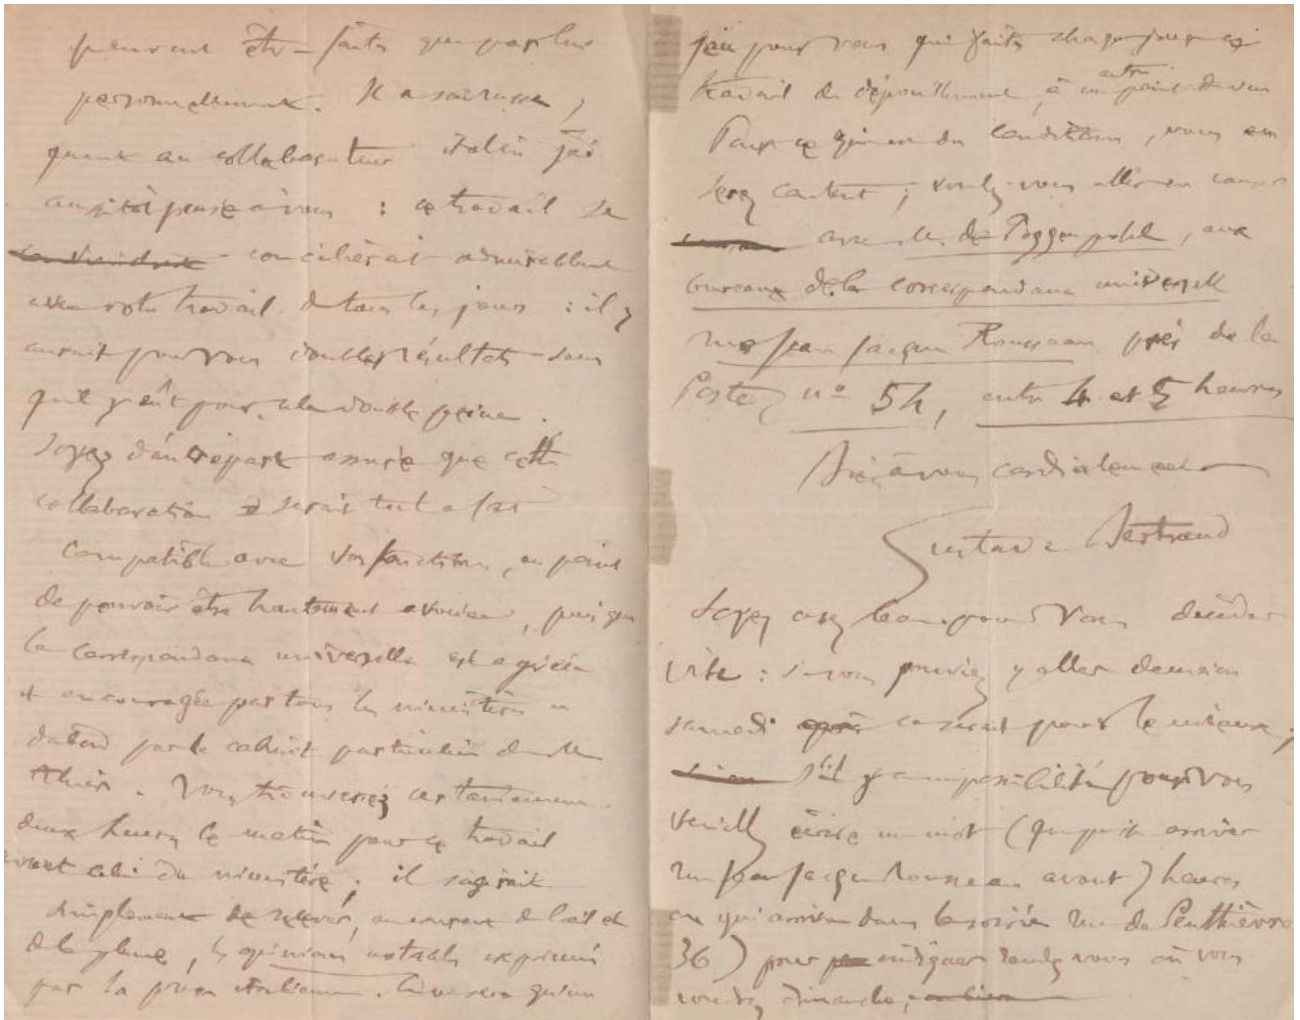 peuvent être faits que par lui
personnellement. Il a son russe ;
quant au collaborateur italien j'ai
aussitôt pensé à vous : ce travail se
concilierait admirablement
avec votre travail de tous les jours : il y
aurait pour vous double résultat sans
qu'il y eût pour cela double peine.
Soyez d'autre part assuré que cette
collaboration serait tout à fait
compatible avec vos fonctions, au point
de pouvoir être hautement avouée, puisque
la correspondance universelle est agréée
et encouragée par tous les ministères
d'abord par le cabinet particulier de M.
Thiers. Vous trouveriez certainement
deux heures le matin pour ce travail
avant celui du ministère ; il s'agirait
simplement de relever, au courant de l'œil et
de la plume, les opinions notables exprimées
par la presse italienne. Ce ne sera qu'un
jeu pour vous qui faites chaque jour ce
travail de dépouillement, à un autre point de vue
Pour ce qui est des conditions, vous en
serez content ; voulez-vous aller en causer
avec M. de Poggenpohl, aux
bureaux de la correspondance universelle
rue Jean Jacques Rousseau près de la
Poste, n° 54, entre 4 et 5 heures
Bien à vous cordialement
Gustave Bertrand
Soyez assez bon pour vous décider
vite : si vous pouviez y aller demain
samedi ce serait pour le mieux ;
s'il y a impossibilité pour vous
veuillez écrire un mot (qui puisse arriver
rue Jean Jacques Rousseau avant 5 heures
ou qui arrive dans la soirée rue de Penthièvre
36) pour indiquer rendez vous où vous
voudrez dimanche,